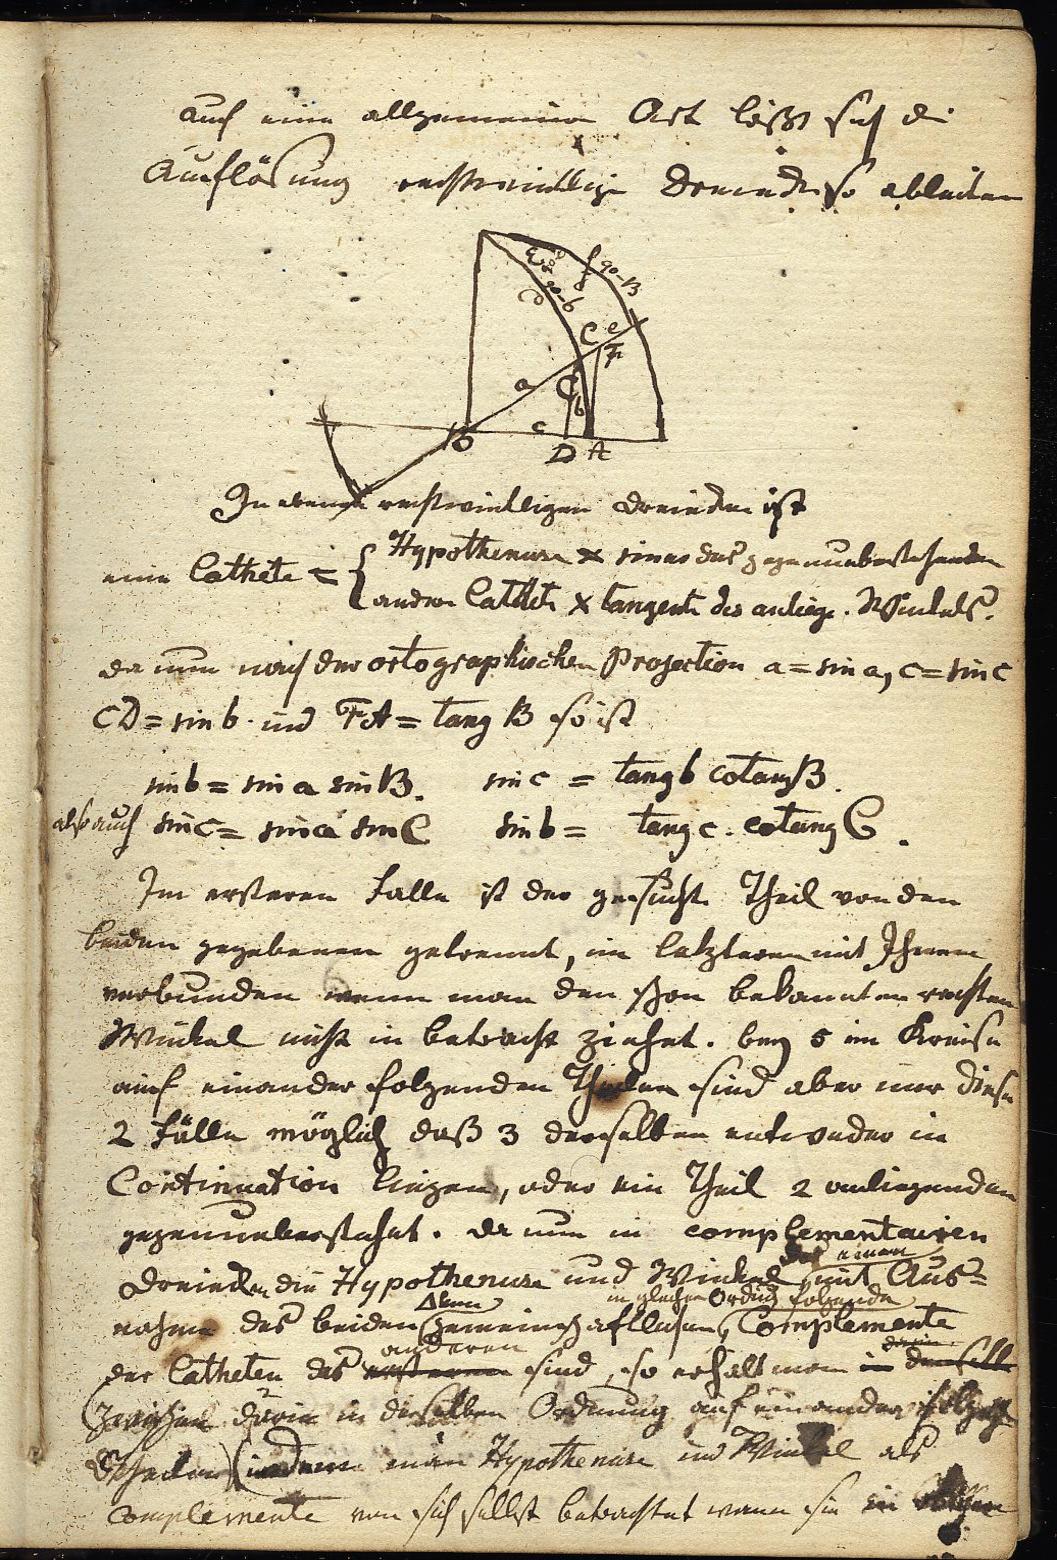 Auf eine allgemeine Art läßt sich die
Auflösung rechtwinkliger Dreiecke so ableiten
90-B
90-b
C e
F
a
b
c
B
D A
In ebenen rechtwinkligen Dreiecken ist
eine Cathete = { Hypothenuse × sinus des gegenueberstehenden
andere Cathete × tangente des anliege. Winkels.
da nun nach der ortographischen Projection a = sin a, c = sin c
CD = sin b. und FA = tang B so ist
sin b = sin a sin B. sin c = tang b cotang B.
also auch sin c = sin a sin C sin b = tang c. cotang C.
Im ersteren Falle ist der gesuchte Theil von den
beiden gegebenen getrennt, im letzteren mit Ihnen
verbunden wenn man den schon bekannten rechten
Winkel nicht in betracht ziehet. bey 5 im Kreise
auf einander folgenden Theilen sind aber nur diese
2 Fälle möglich daß 3 derselben entweder in
Continuation liegen, oder ein Theil 2 anliegenden
gegenuebersteht. da nun in complementairen
des einen
Dreiecken die Hypothenuse und Winkel mit Aus-
in gleicher Ordng folgende
nahme des beiden gemeinschaftlichen, Complemente
anderen
der Catheten des sind, so erhält man
darin in derselben Ordnung auf einander
Theilen (indem man Hypothenuse und Winkel als
Complemente von sich selbst betrachtet wenn sie in